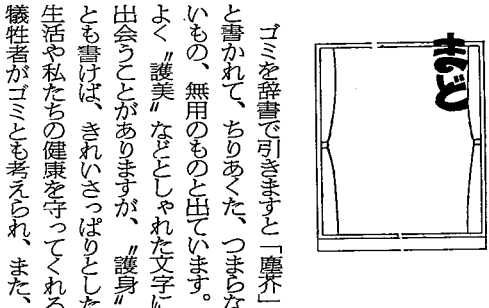 まど
ゴミを辞書で引きますと「塵芥」
と書かれて、ちりあくた、つまらな
いもの、無用のものと出ています。
よく〝護美〟などとしゃれた文字に
出会うことがありますが、〝護身〟
とも書けば、きれいさっぱりとした
生活や私たちの健康を守ってくれる
犠牲者がゴミとも考えられ、また、